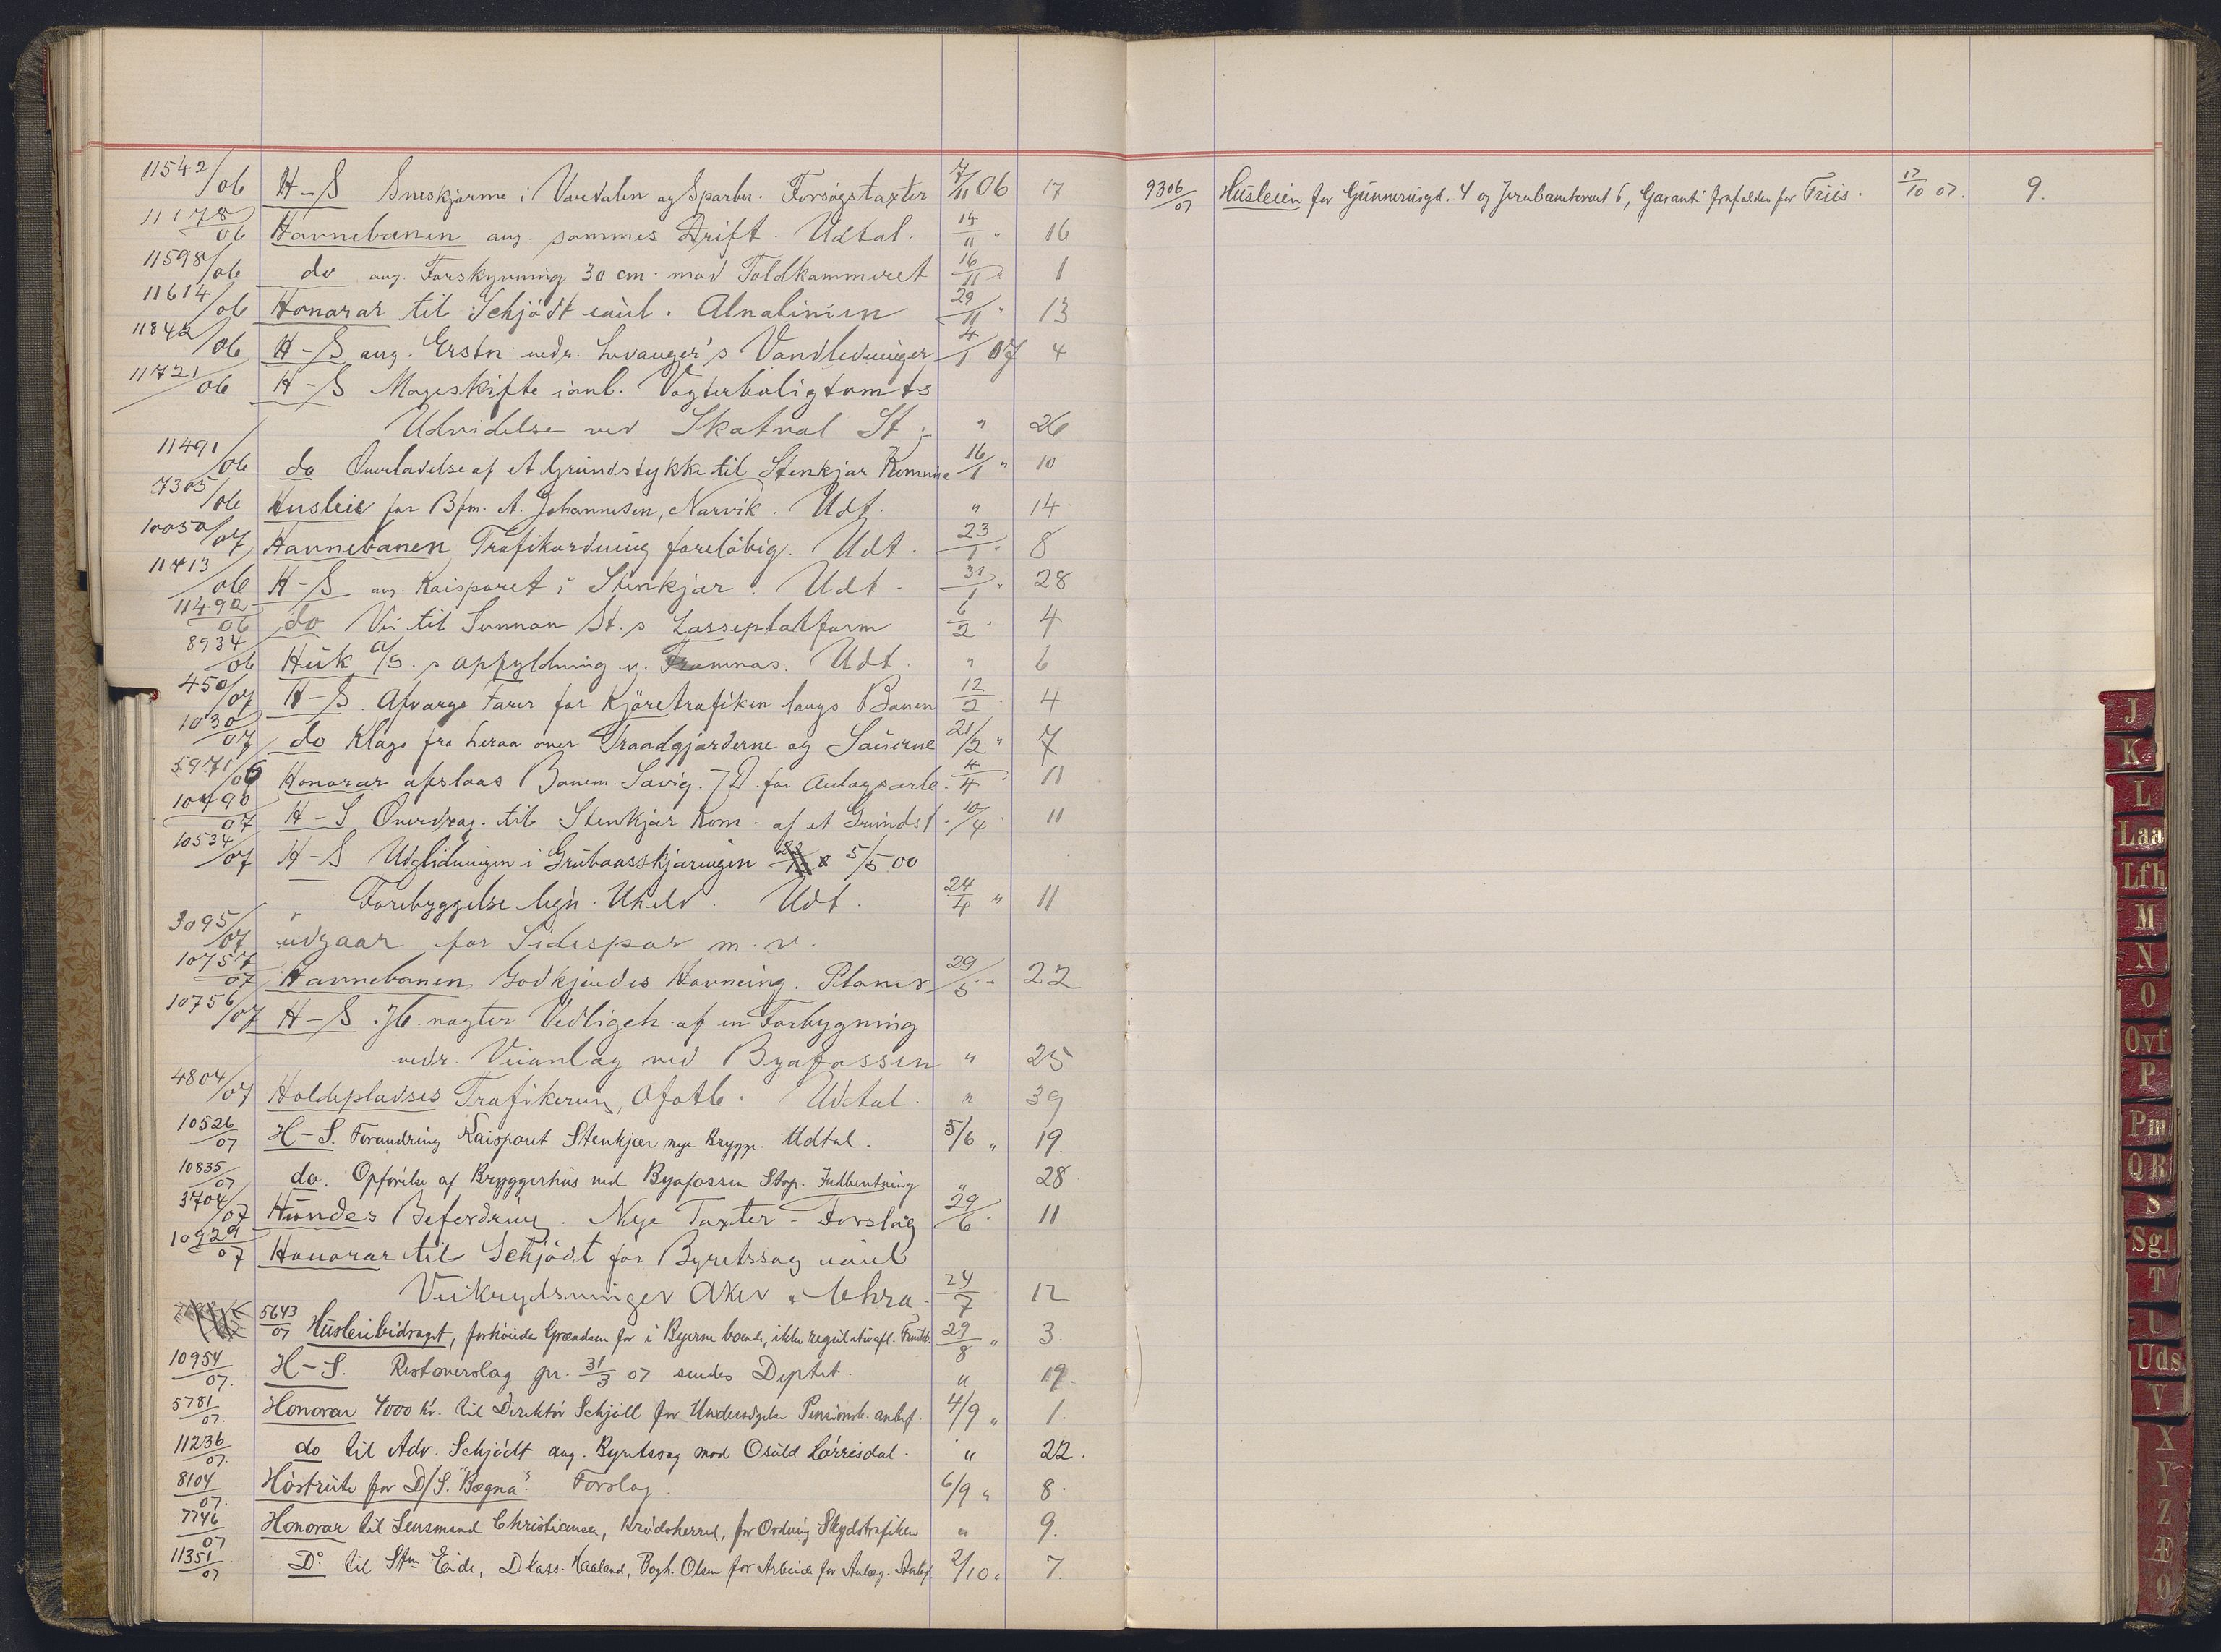 11542/06 H-S Sneskjærme i Værdalen og Sparbu. Forsøgstaxter 7/11 06 17
11178/06 Havnebanen ang. sammes Drift. Udtal. 14/11 " 16
11598/06 do ang. Forskyvning 30 cm. mod Toldkammeret 16/11 " 1
11614/06 Honorar til Schjödt Alnalinien 29/11 " 13
11842/06 H-S ang. Erstn. vedr. Levanger's Vandledninger 4/1 07 4
11721/06 H-S Mageskifte Vogterboligtomts
Udvidelse ved Skatval St. " 26
11491/06 do Overladelse af et Grundstykke til Stenkjær Kommune 16/1 " 10
7305/06 Husleie for Bfm. A. Johannesen, Narvik. Udt. " 14
10050/07 Havnebanen Trafikordning foreløbig. Udt. 23/1 " 8
11413/06 H-S ang. Kaisporet i Stenkjær. Udt. 31/1 " 28
11492/06 do Vei til Sunnan St.s Lasseplatform 6/2 " 4
8934/06 Huk A/S.s opfyldning v. Framnæs. Udt. " 6
450/07 H-S. Afværge Farer for Kjøretrafiken langs Banen 12/2 " 4
1030/07 do Klage fra over Grandgjærderne og 21/2 " 7
5971/06 Honorar afslaas Banem. for Anlægsarb. 4/4 " 11
10490/07 H-S Overdrag. til Stenkjær Kom. af et Grundst. 10/4 " 11
10534/07 H-S Udglidningen i Grubaasskjæringen 5/5 00
" Forebyggelse Udt. 24/4 " 11
3095/07 udgaar for Sidespor m.v.
10757/07 Havnebanen Godkjendes Havneing. Planer 29/5 " 22
10756/07 H-S. nægter Vedligeh. af en Forbygning
vedr. Veianlæg ved Byafossen " 25
4804/07 Holdepladses Trafikering, Ofotb. Udtal. " 39
10526/07 H-S. Forandring Kaisporet Stenkjær nye Brygge. Udtal. 5/6 " 19.
10835/07 do. Opførelse af Bryggerhus ved Byafossen Stop. Indberetning " 28
3704/07 Hundes Befordring. Nye Taxter - Forslag 29/6 " 11
10929/07 Honorar til Schjödt for Byretssag
Veikrydsninger Aker & Chra. 24/7 12
5643/07 Husleiebidraget, forhøiedes Grændsen for i Byerne boende, ikke regulativafl. Funkt. 29/8 " 3.
10954/07. H-S. Restoverslag pr. 31/3 07 sendes Deptet. " 19.
5781/07. Honorar 4000 Kr. til Direktør Schjöll for Undersøgelse Pensionsk. anbef. 4/9 " 1.
11236/07. do til Adv. Schjödt ang. Byretssag mod Osuld Lørrisdal. " 22.
8104/07. Høstrute for D/S. "Bægna". Forslag. 6/9 " 8.
7746/07 Honorar til Lensmand Christiansen, Krødsherred, for Ordning Skydstrafiken " 9.
11351/07 Do. til Stm Eide, Dkass. Haaland, Bogh. Olsen for Arbeide for Anlæg. 2/10 " 7.
9306/07 Husleien for Gunnerusgd. 4 og Jernbanetorvet 6, Garanti frafaldes for Friis. 17/10 07. 9.
J
K
L
Laa
Lfh
M
N
O
Ovf
P
Pm
QR
S
Sgl
T
U
Uds
V
X
Y
Z
Æ
Ø